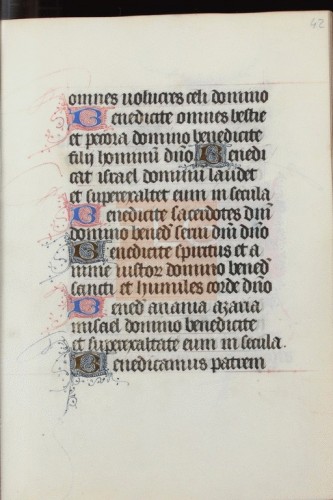 42
omnes uolucres celi domino
Benedicite omnes bestie
et pecora domino benedicite
filij hominū dn̄o Benedi
cat israel dominū laudet
et superexaltet eum in secula
Benedicite sacerdotes dn̄i
domino bened̄ serui dn̄i dn̄o
Benedicite spiritus et a
nime iustor̄ domino bened̄
sancti et humiles corde dn̄o
Bened̄ anania azaria
misael domino benedicite
et superexaltate eum in secula.
Benedicamus patrem